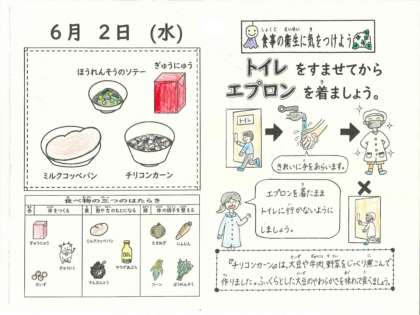 6月 2日 (水)
ほうれんそうのソテー
ぎゅうにゅう
ミルクコッペパン
チリコンカーン
食べ物の三つのはたらき
赤 体をつくる
黄 熱や力のもとになる
緑 体の調子を整える
ぎゅうにゅう
ぎゅうにく
だいず
ミルクコッペパン
サラダあぶら
たまねぎ
にんじん
コーン
ほうれんそう
しょくじ えいせい き
食事の衛生に気をつけよう
トイレ をすませてから
エプロン を着ましょう。
トイレ
きれいに手をあらいます。
エプロンを着たまま
トイレに行かないように
しましょう。
『チリコンカーン』は、大豆や牛肉、野菜をじっくり煮こんで
作りました。ふっくらとした大豆のやわらかさを味わって食べましょう。